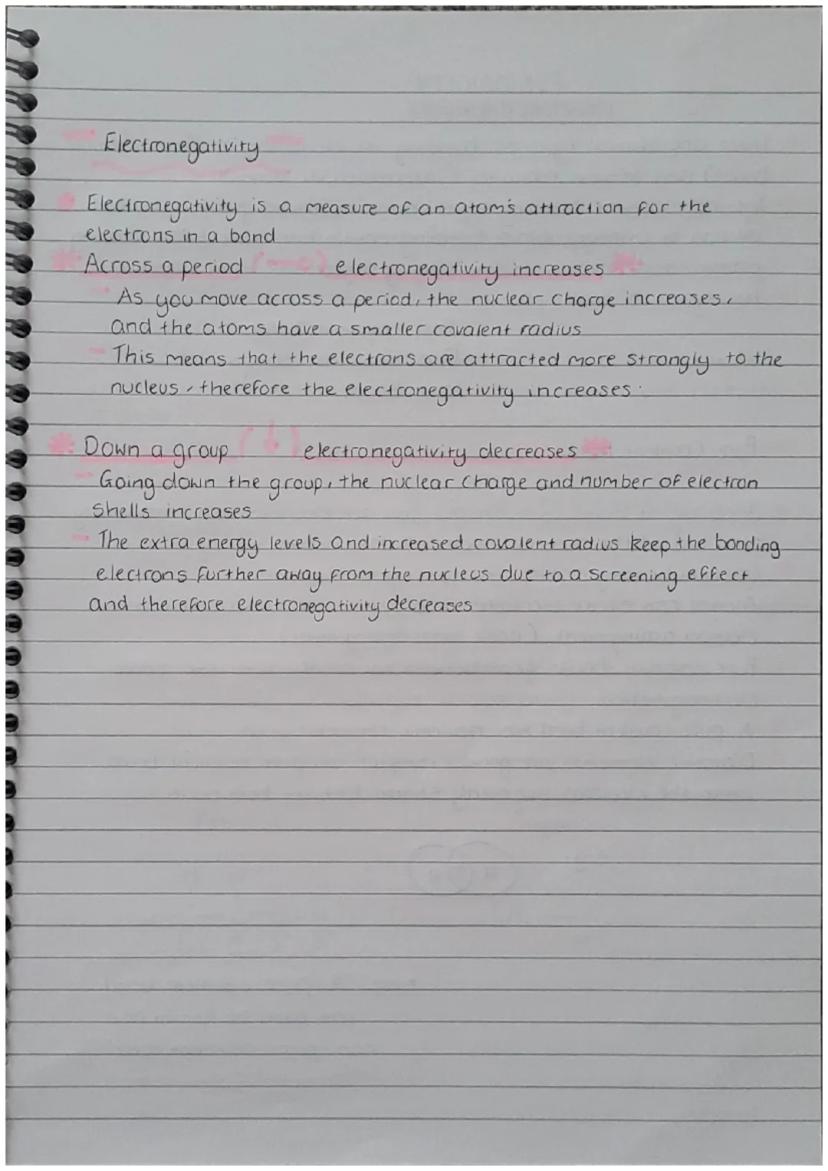 Electronegativity
Electronegativity is a measure of an atom's attraction for the
electrons in a bond
Across a period (→) electronegativity increases
As you move across a period, the nuclear charge increases,
and the atoms have a smaller covalent radius
This means that the electrons are attracted more strongly to the
nucleus, therefore the electronegativity increases.
Down a group (↓) electronegativity decreases
Going down the group, the nuclear charge and number of electron
shells increases
The extra energy levels and increased covalent radius keep the bonding
electrons further away from the nucleus due to a screening effect
and therefore electronegativity decreases